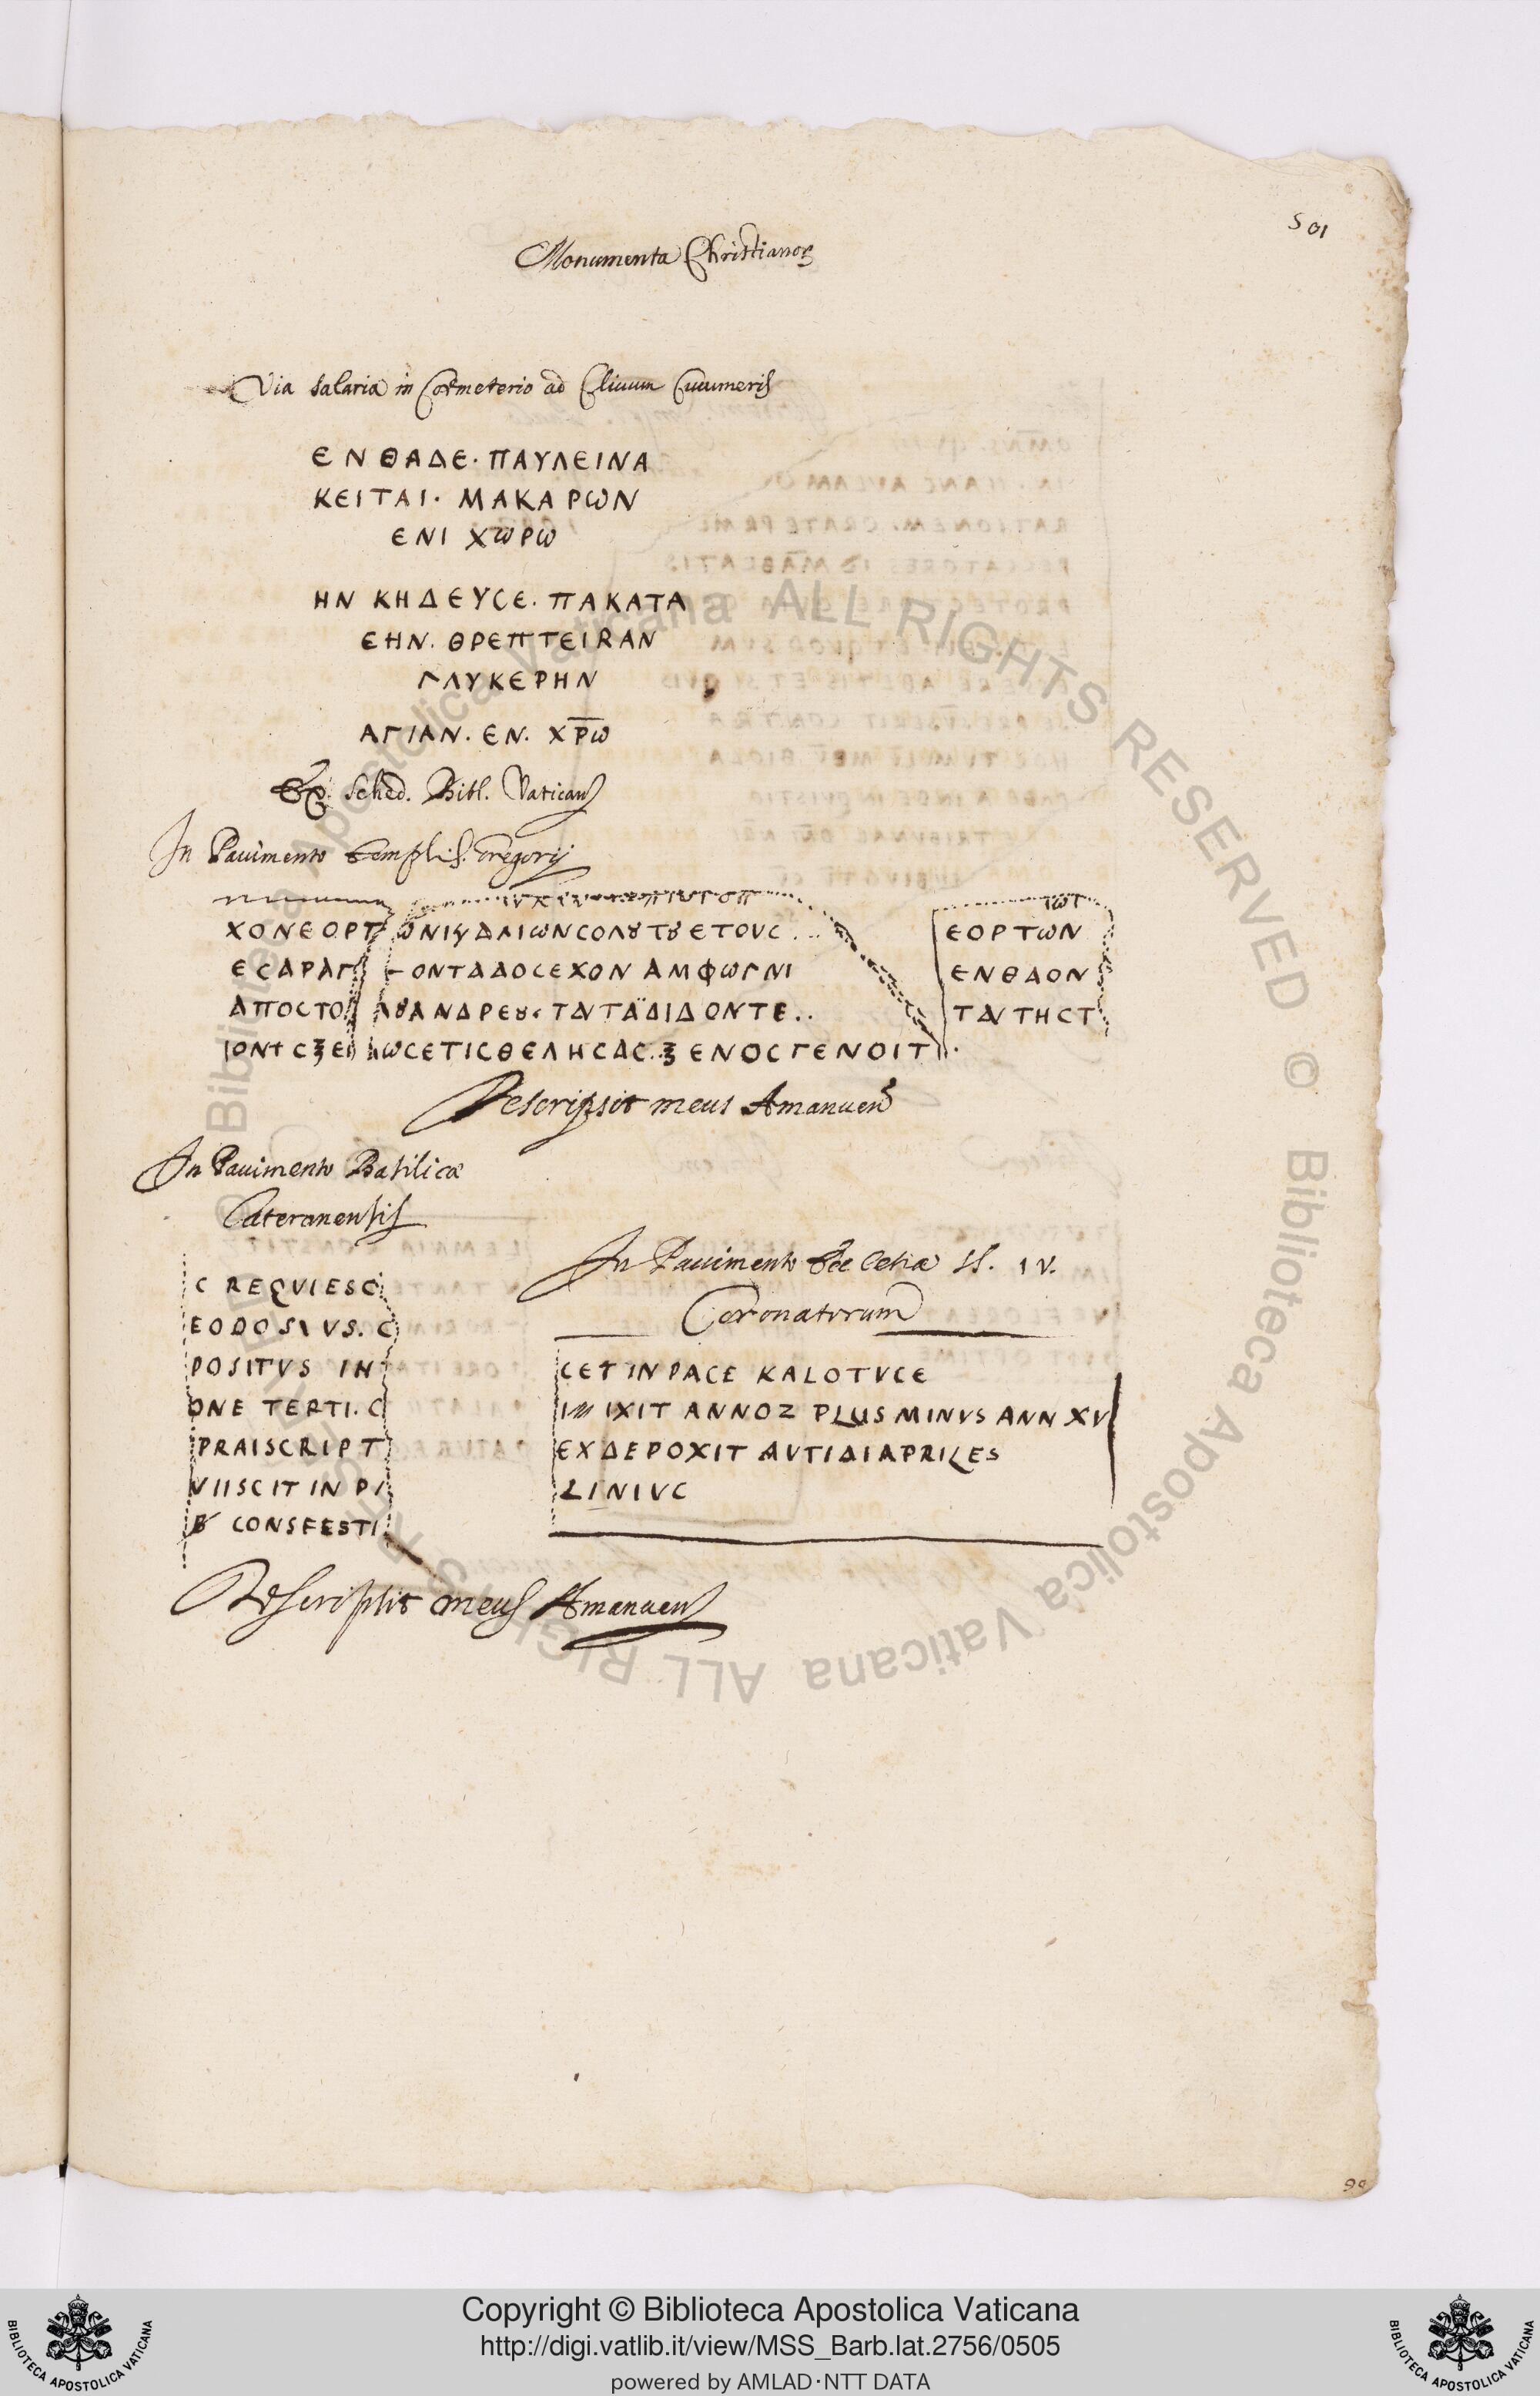 501
Monumenta Christianoꝝ
Via Salaria in Coemeterio ad Cliuum Cucumeris
ΕΝΘΑΔΕ· ΠΑΥΛΕΙΝΑ
ΚΕΙΤΑΙ· ΜΑΚΑΡΩΝ
ΕΝΙ ΧΩΡΩ
ΗΝ ΚΗΔΕΥϹΕ· ΠΑΚΑΤΑ
ΕΗΝ. ΘΡΕΠΤΕΙRΑΝ
ΓΛΥΚΕΡΗΝ
ΑΓΙΑΝ. ΕΝ. ΧΡ̅Ω
Ex Sched. Bibl. Vatican
In Pauimento Templi S. Gregorij
ΧΟΝΕΟΡΤ ΟΝΙ ΔΛΙΩΝϹΟΛȣΤȣΕΤΟΥϹ . . ΕΟΡΤΩΝ
ΕϹΑΡΑΓ ΟΝΤΑΔΟϹΕΧΟΝ ΑΜΦΩΓΝΙ ΕΝΘΑΟΝ
ΑΠΟϹΤΟ ΛȣΑΝΔΡΕȣ ΤΑΥΤΑΔΙΔΟΝΤΕ . . ΤΑΥΤΗϹΤ
ΙΟΝϯϹΞΕΙ ΩϹΕΤΙϹΘΕΛΗϹΑϹ..ΞΕΝΟϹΓΕΝΟΙΤ
Descripsit meus Amanuens
In Pauimento Basilicæ
Lateranensis
C REQVIESC
EODOSIVS. C
POSITVS IN
ONE TERTI. C
PRAISCRIPT
VIISCIT IN P
B CONSFESTI
In Pauimento Ecclesiæ SS. IV.
Coronatorum
CET IN PACE KALOTVCE
IXIT ANNOZ PLUS MINVS ANN XV
EXDEPOXIT AVTIDIAPRILES
LINIVC
Descripsit meus Amanuens
99
Copyright © Biblioteca Apostolica Vaticana
http://digi.vatlib.it/view/MSS_Barb.lat.2756/0505
powered by AMLAD·NTT DATA
BIBLIOTECA APOSTOLICA VATICANA
BIBLIOTECA APOSTOLICA VATICANA
© Biblioteca Apostolica Vaticana ALL RIGHTS RESERVED © Biblioteca Apostolica Vaticana ALL RIGHTS RESERVED